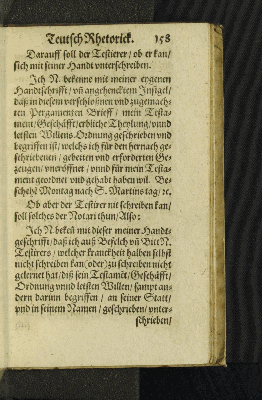 Teutsch Rhetorick. 158
Darauff soll der Testierer / ob er kan /
sich mit seiner Handt vnterschreiben.
Ich N. bekenne mit meiner eygenen
Handtschrifft / vñ angehencktem Insigel /
daß in diesem verschloßnen vnd zugemach-
ten Pergamenten Brieff / mein Testa-
ment / Geschäfft / erbliche Theylung / vnnd
letsten Willens Ordnung geschrieben vnd
begriffen ist / welchs ich für den hernach ge-
schriebenen / gebetten vnd erforderten Ge-
zeugen / vneröffnet / vnnd für mein Testa-
ment geordnet vnd gehabt haben wil. Be-
schehẽ Montag nach S. Martins tag / ꝛc.
Ob aber der Testirer nit schreiben kan /
soll solches der Notari thun / Also:
Ich N. bekeñ mit dieser meiner Handt-
geschrifft / daß ich auß Befelch vñ Bitt N.
Testirers / welcher kranckheit halben selbst
nicht schreiben kan (oder) zu schreiben nicht
gelernet hat / diß sein Testamẽt / Geschäfft /
Ordnung vnnd letsten Willen / sampt an-
dern darinn begriffen / an seiner Statt /
vnd in seinem Namen / geschrieben / vnter-
schrieben /